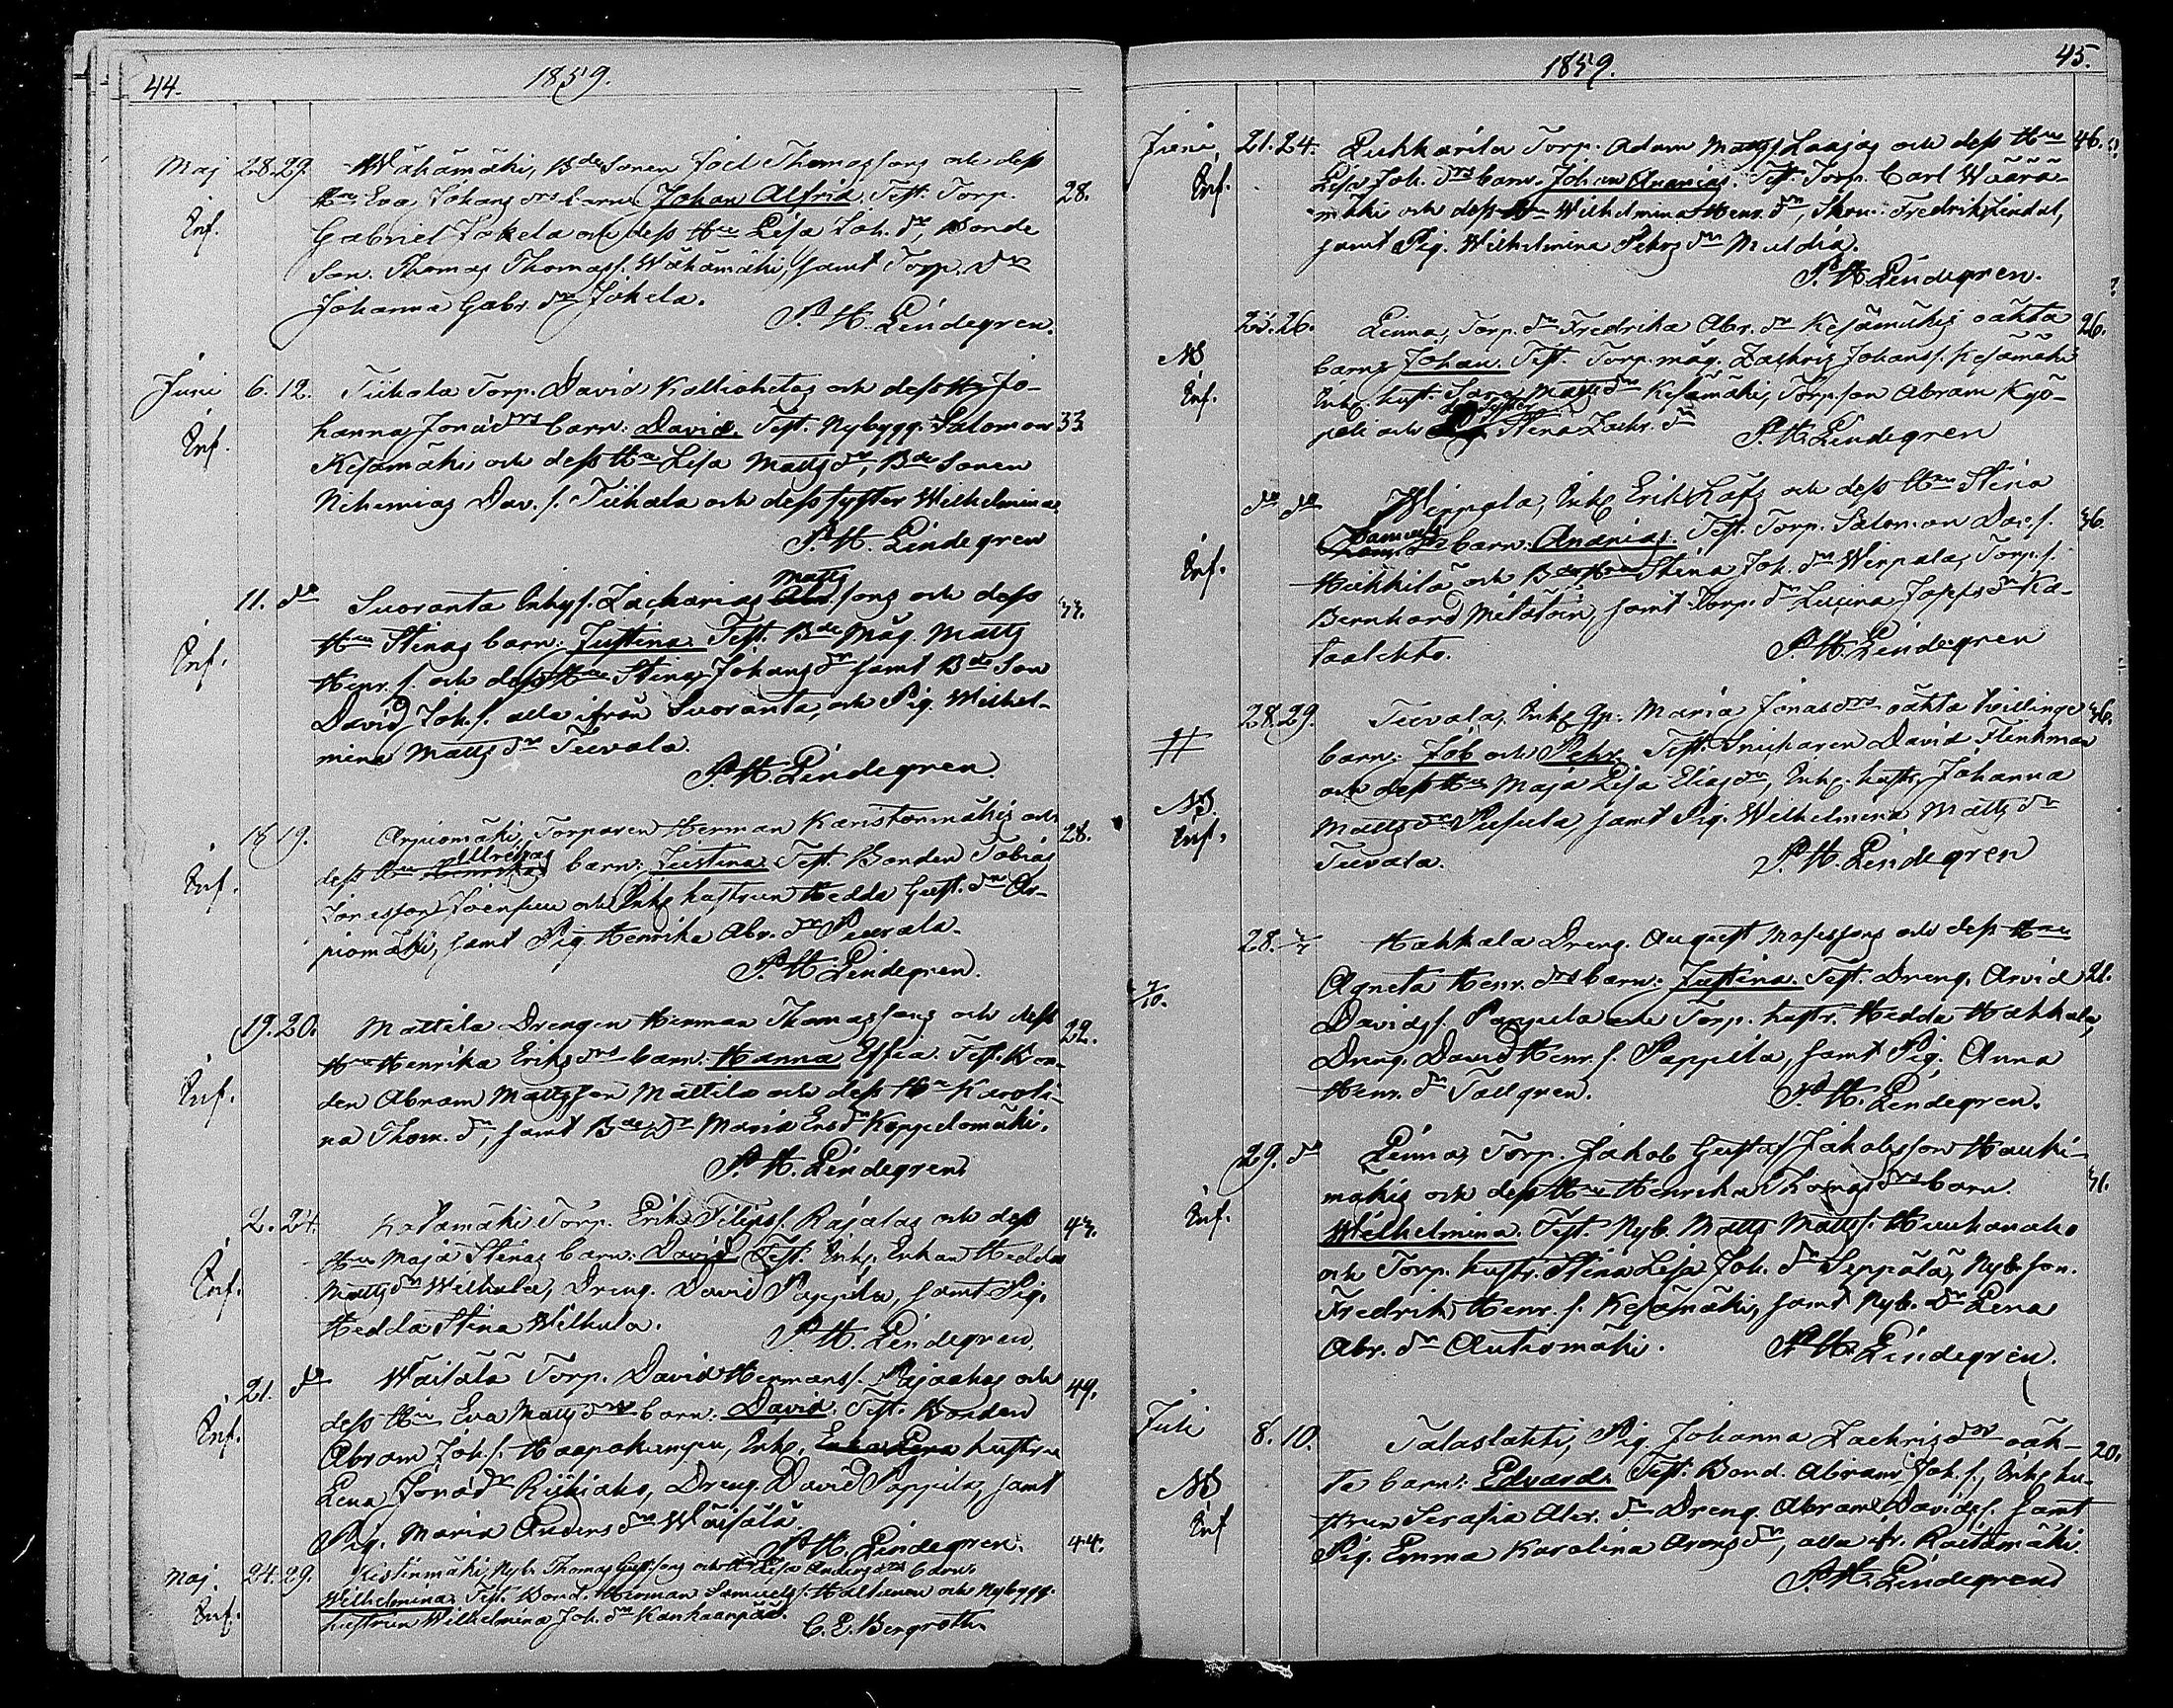 44. 1859.
Maj 28. 29. Wähämäki, Bde Sonen Joel Thomassons och dess
Hru Eva Johans drs barn: Johan Alfrid. Test. Torp. 28.
Inf. Gabriel Jokela och dess Hru Lisa Joh. dr, Bonde
Son. Thomas Thomass. Wähämäki, samt Torp. dr
Johanna Gabr. dr Jokela.
P. H. Lindegren.
Juni 6. 12. Tiikala Torp. David Kalliolietas och dess Hru Jo-
hanna Jonæ drs barn: David. Test. Nybygg. Salomon 33
Inf. Kesämäki och dess Hru Lisa Matts dr, Bde Sonen
Nehemias Dav. s. Tiikala och dess syster Wilhelmina.
P. H. Lindegren
Matts
11. do Suoranta Inhys. Zacharias sons och dess 33.
Hrus Stinas barn: Justina. Test. Bde Måg. Matts
Inf. Henr. s. och dess Hru Stina Johans dr samt Bde Son
David Joh. s. alla ifrån Suoranta, och Pig. Wilhel-
mina Matts dr Teevala.
P. H. Lindegren.
18 19. Arpiomäki, Torparen Herman Karistonmäkis och 28.
Ulrikas
Inf. dess Hru barn: Justina. Test. Bonden Tobias
Jonasson Joensuu och Inhs hustrun Hedda Gust. dr Ar-
piomäki, samt Pig Henrika Abr. dr Peurala.
P. H. Lindegren.
19. 20. Mattila Drengen Herman Thomassons och dess 22.
Hru Henrika Eriks drs barn: Hanna Effia. Test. Bon-
Inf. den Abram Mattsson Mattila och dess Hru Karoli-
na Thom. dr, samt Bde dr Maria Ers dr Koppelomäki.
P. H. Lindegren.
2. 24. Katamäki Torp. Erik Filipss. Rajalas och dess 43.
Hru Maja Stinas barn: David. Test. Inhs. Enkan Hedda
Inf. Matts dr Wilkula, Dreng. David Pappila, samt Pig.
Hedda Stina Wilkula.
P. H. Lindegren.
21. do Wäisälä Torp. David Hermanss. och 49.
dess Hru Eva Matts drs barn: David. Test. Bonden
Inf. Abram Joh. s. Haapakumpu, Inhs. Enkan Lena hustrun
Lena Jonæ dr Riihiaho, Dreng. David Pappila, samt
Pig. Maria Anders dr Wäisälä.
P. H. Lindegren.
Maj. 24. 29. Kistinmäki, Nyb. Thomas Gust. sons och Hru Lisa Anders drs barn: 44.
Inf. Wilhelmina. Test. Bond. Herman Samuels. Haltunen och Nybygg.
hustrun Wilhelmina Joh. dr Kankaanpää.
C. E. Bergroth.
1859. 45.
Juni 21. 24. Puhkarila Torp. Adam Matss Laajas och dess Hru 46.
Inf. Lisa Joh. drs barn: Johan Ananias. Test. Torp. Carl Wäärä-
mäki och dess Hru Wilhelmina Henr. dr, Skrv. Fredrik Lindal,
samt Pig. Wilhelmina Pehrs dr Muldia.
P. H. Lindegren.
25. 26. Linna, Torp. dr Fredrika Abr. dr Kesämäkis oäkta 26.
NB barn: Johan. Test. Torp. måg. Zachris Johanss. Kesämäki
Inf. Inhs. hust. Sara Matts dr Kesämäki, Torp. son Abram Kyö-
peli och Stina Zachr. dr
P. H. Lindegren
do do Wirpala, Inhs Erik Löfs och dess Hru Stina
Samuels drs barn: Ananias. Test. Torp. Salomon Dav. s. 36.
Inf. Heikkilä och Stina Joh. dr Wirpala, Torp. s.
Bernhard Metsitoin, samt Torp. dr Lusina Josefs dr Ka-
taalehto.
P. H. Lindegren
28. 29. Teevala, Inhs Qp. Maria Jonas drs oäkta tvillinge 36.
barn: Job och Pehr. Test. Snickaren David Flinkman
och dess Hru Maja Lisa Elias dr, Inhs. hustr. Johanna
NB Matts dr Pusula, samt Pig. Wilhelmina Matts dr
Inf. Teevala.
P. H. Lindegren
28. Hakkala Dreng. August Mosessons och dess Hru
Agneta Henr. drs barn: Justina. Test. Dreng. Arvid 21.
Davids s. Pappila och Torp. hustr. Hedda Hakkala,
Dreng. David Henr. s. Pappila, samt Pig. Anna
Henr. dr Tallgren.
P. H. Lindegren.
29. do Linna, Torp. Jakob Gustaf Jakobsson Hauki-
mäkis och dess Hru Henrika Thomas drs barn. 31.
Inf. Wilhelmina. Test. Nyb. Matts Matts s. Huuhanaho
och Torp. hustr. Stina Lisa Joh. dr Seppälä, Nyb. son.
Fredrik Henr. s. Kesämäki, samt Nyb. dr Lena
Abr. dr Autiomäki.
P. H. Lindegren.
Juli 8. 10. Talaslahti, Pig. Johanna Zachris drs oäk-
ta barn: Edvard. Test. Bond. Abram Joh. s., Inhs hu- 20.
NB strun Serafia Alex. dr Dreng. Abram Davids s. samt
Inf Pig. Emma Karolina Arons dr, alla fr. Raitamäki.
P. H. Lindegren